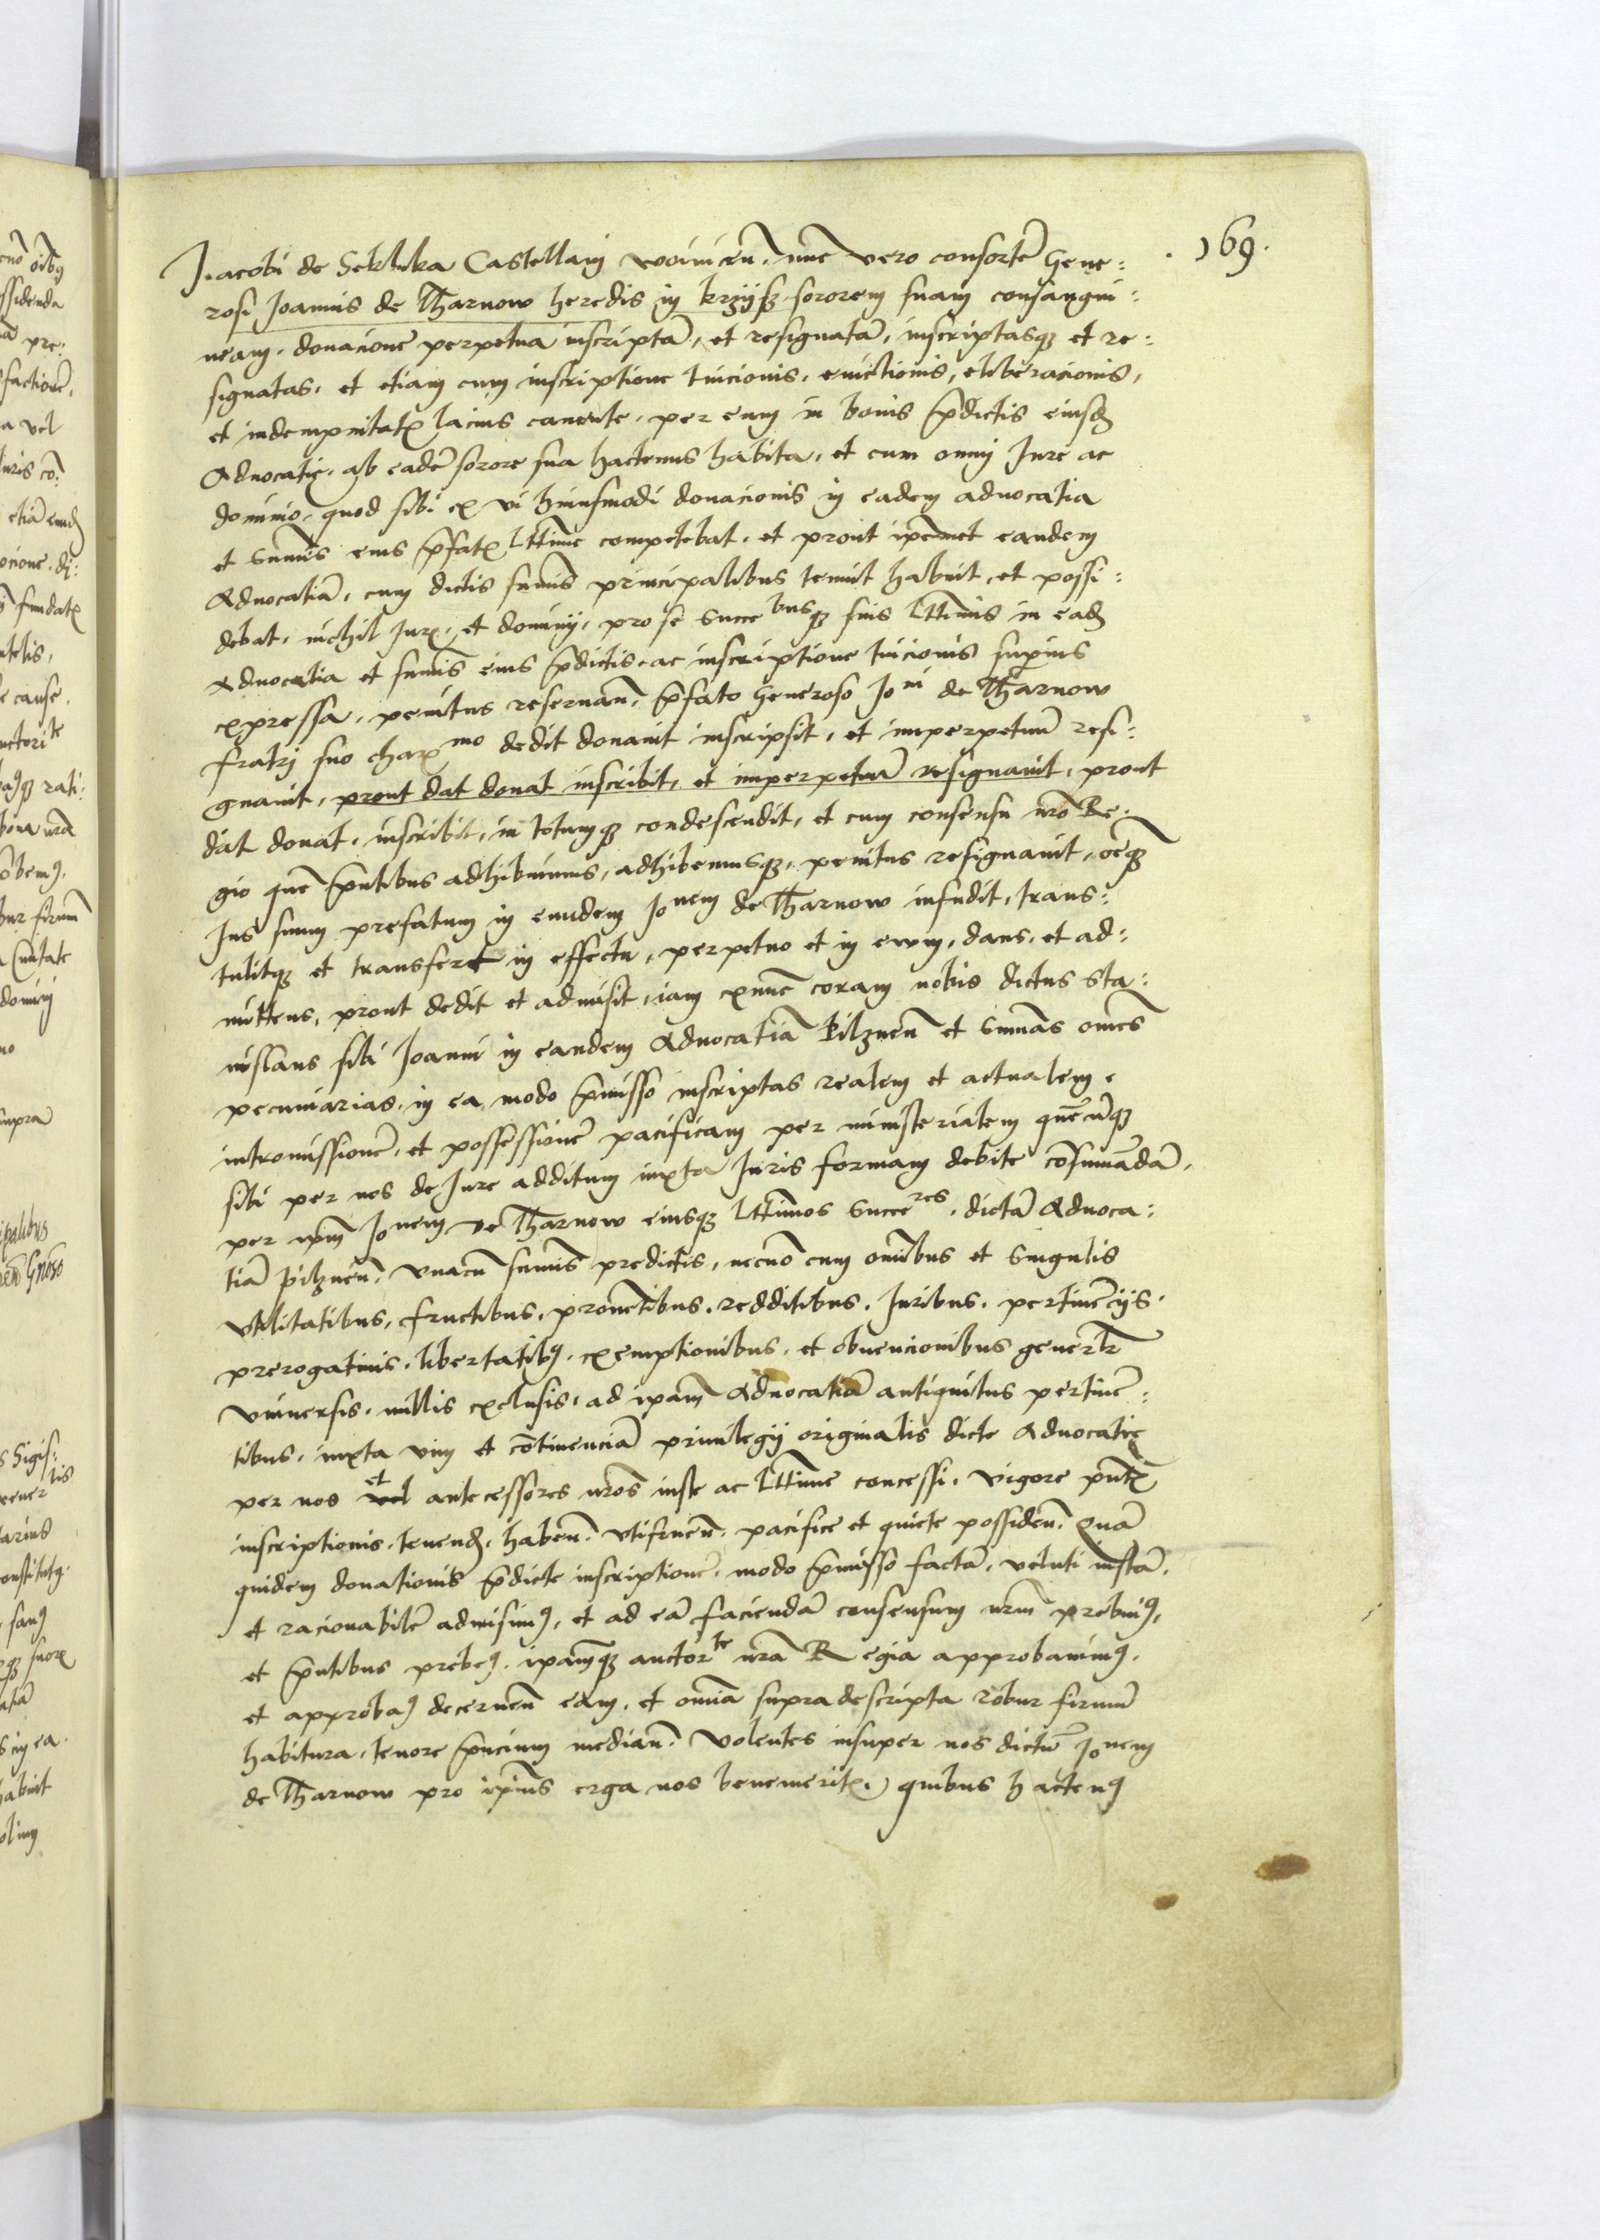 . 169.
Jacobi de Sekluka Castellani woinicen̄. nuc̄ vero consortē Gene:
rosi Joannis de Tharnow heredis in krzyż sororem suam consangui:
neam. donacione perpetua inscriptā, et resignatā, inscriptasq; et re:
signatas, et etiam cum inscriptione tuicionis, euictionis, eliberacionis,
et indempnitatꝭ lacius cauente, per eum in bonis p̄dictis eiusd
Aduocatie, ab eadē sorore sua hactenus habita, et cum omni Jure ac
dominio, quod sibi ex vi huiusmodi donacionis in eadem aduocatia
et sum̄is eius p̄fatꝭ lttime competebat, et prout ipemet eandem
Aduocatiā, cum dictis sum̄is principalibus tenuit habuit et possi:
debat, nichil Jurꝭ, et dominij, pro se succe bus q; suis lttimis in ead
aduocatia et sum̄is eius p̄dictis ac inscriptione tuicionis superius
expressa, penitus reseruan̄, p̄fato Generoso Jo ni de Tharnow
fratri suo charꝭ mo dedit donauit inscripsit, et imperpetuū resi:
gnauit, prout dat donat inscribit, et imperpetuū resignauit, prout
dat donat, inscribit, in totumq; condescendit, et cum consensu nr̄o Re:
gio quē p̄ntibus adhibuimus, adhibemusq;, penitus resignauit, oēq;
Jus suum prefatum in eundem Jo nem de Tharnow infudit, trans:
tulitq; et transfert in effectu, perpetuo et in ewm, dans, et ad:
mittens, prout dedit et admisit, iam exnunc coram nobis dictus Sta:
nislaus sibi Joanni in eandem Aduocatiā Pilznen̄ et Sum̄as omēs
pecuniarias, in ea modo p̄misso inscriptas realem et actualem
intromissionē, et possessionē pacificam per ministerialem quēcūq;
sibi per nos de Jure additum iuxta Juris formam debite cōsumādā.
per ipm̄ Jo nem de Tharnow eiusq; lttimos Succe res, dictā Aduoca:
tiā pilznen̄, vnacū sum̄is predictis, necnō cum om̄ibus et Singulis
vtilitatibus, fructibus, prouētibus, redditibus, Juribus, pertinēcijs.
prerogatiuis, libertatibꝰ, exemptionibus, et obuencionibus generlr̄
vniuersis, nullis exclusis, ad ipam̄ Aduocatiā antiquitus pertinē:
tibus, iuxta vim et cōtinenciā priuilegij originalis dicte Aduocatie
per nos et vel antecessores nr̄os iuste ac lttime concessi, vigore pn̄tꝭ
inscriptionis, tenend, haben̄, vtifruen̄, pacifice et quiete possiden̄. Quā
quidem donationis p̄dicte inscriptionē, modo p̄misso factā, veluti iustā,
et racionabilē admisimꝰ, et ad eā faciendā consensum nrm̄ prebuiꝰ,
et p̄ntibus prebeꝰ, ipamq; auctor te nr̄a Regia approbauimꝰ.
et approbaꝰ decernen̄ eam, et omia supradescripta robur firmū
habitura, tenore p̄ncium median̄. Volentes insuper nos dictū Jo nem
de Tharnow pro ipius erga nos benemeritꝭ, quibus hactenꝰ